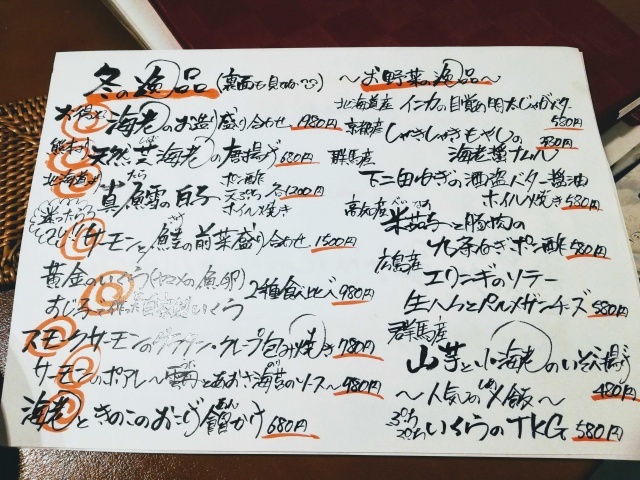 冬の逸品 (裏面も見てね)
大海老のお造り盛り合わせ 1980円
天然芝海老の唐揚げ 680円
北海道より
真鱈の白子 ポン酢 天ぷら ホイル焼き 各1200円
迷ったらコレ!!
サーモンと鮭の前菜盛り合わせ 1500円
黄金のいくら(ヤマメの魚卵)
2種食べ比べ 980円
スモークサーモンの クレープ包み焼き 780円
サーモンのポアレ〜雲丹とあおさ海苔のソース〜 980円
海老ときのこのおこげ 餡かけ 680円
〜お野菜の逸品〜
北海道産 インカの目覚め 明太じゃがバター 580円
京都産 しゃきしゃきもやしの 海老醤ナムル 380円
群馬産 下二田ねぎの酒盗バター醤油
ホイル焼き 580円
高知産 米茄子と豚肉の
九条ねぎポン酢 580円
広島産 エリンギのソテー
生ハムとパルメザンチーズ 580円
群馬産
山芋と小海老のいそべ揚げ 480円
〜人気の〆飯〜
ぷちぷち いくらのTKG 580円